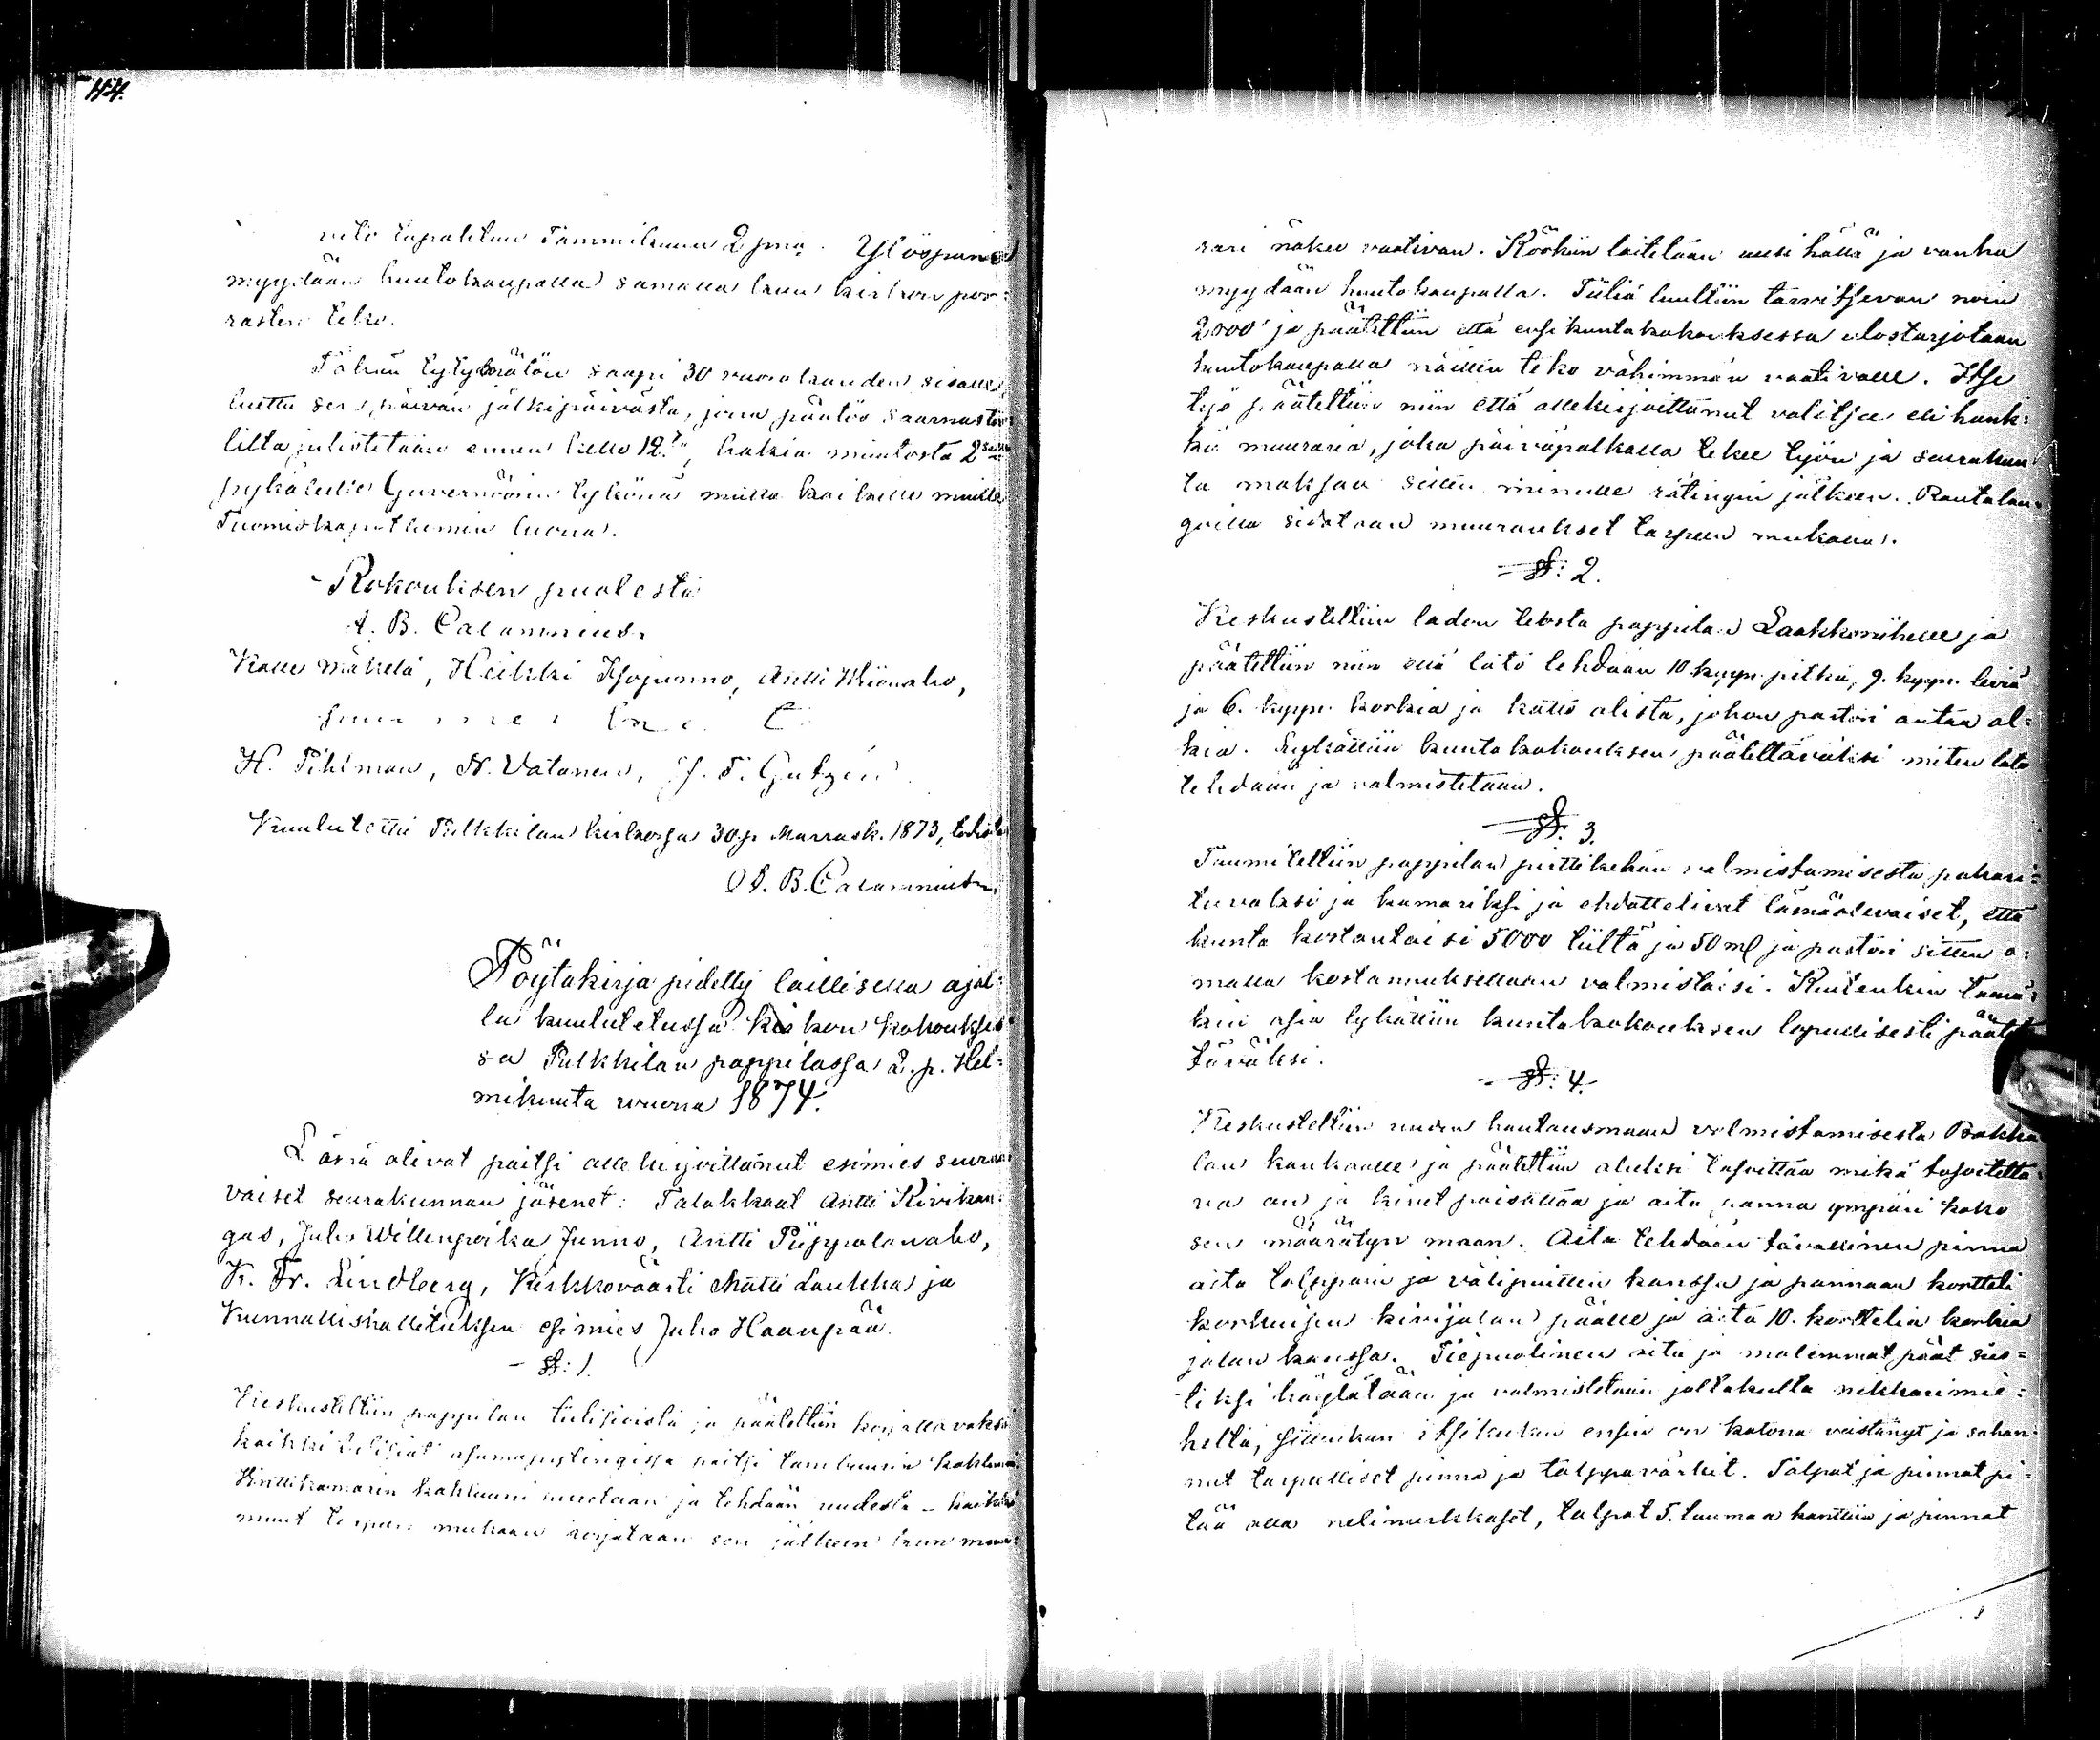 144.
tapahtuu Tammikuun 2 pnä. Ylöspano
myydään huutokaupalla samalla kuin kirkon por=
rasten teko.
Tähän tytymätön saapi 30 vuorokauden sisällä,
luettu sen päivän jälkipäivästä, jona päätös saarnastuo=
lilta julistetaan ennen kello 12.ta, hakia muutosta 2sessa
pykälässä Guvernöörin tykönä mutta kaikille muille
Tuomiokapitlumin luona.
Kokouksen puolesta
A. B. Calamnius.
Kalle Mäkelä, Heikki Isojunno, Antti
H. Pihlman, N. Vatanen, J. F. Gutzén
Kuulutettu Pulkkilan kirkossa 30.p. Marrask. 1873, todistaa
A. B. Calamnius.
Pöytäkirja pidetty laillisella ajal=
la kuulutetussa kirkon kokoukses=
sa Pulkkilan pappilassa 2. p. Hel=
mikuuta vuonna 1874.
Läsnä olivat paitsi allekirjoittanut esimies seuraa=
vaiset seurakunnan jäsenet: Talokkaat Antti Kivikan=
gas, Juho Willenpoika Junno, Antti Piippolanaho,
K. Fr. Lindberg, Kirkkoväärti Matti Laukka ja
Kunnallishallituksen esimies Juho Haanpää.
§: 1.
Keskusteltiin pappilan tulisioista ja päätettiin korjattavaksi
kaikki tulisiat asumapytingissä paitsi tambuurin kakluuni
Kinttikamarin kakluuni muutetaan ja tehdään uudesta – kaikki
muut tarpeen mukaan korjataan sen jälkeen kuin muu=
rari näkee vaativan. Köökiin laitetaan uusi hällä ja vanha
myydään huutokaupalla. Tiiliä luultiin tarvitsevan noin
2000 ja päätettiin että ensi kuntakokouksessa ulostarjotaan
huutokaupalla näitten teko vähimmän vaativalle. Itse
työ päätettiin niin että allekirjoittanut valitsee eli hank=
kii muuraria, joka päiväpalkalla tekee työn ja seurakun
ta maksaa sitten minulle rätingin jälkeen. Rautalan=
goilla sidotaan muuraukset tarpeen mukaan.
§: 2.
Keskusteltiin ladon teosta pappilan Laakkoniihulle ja
päätettiin niin että lato tehdään 10 kyyn. pitkä, 9. kyyn. leviä
ja 6. kyyn. korkia ja katto olista, johon pastori antaa ol=
kia. Lykättiin kuntakokouksen päätettäväksi miten lato
tehdään ja valmistetaan.
§: 3.
Tuumiteltiin pappilan puittikehän valmistamisesta pakari=
tuvaksi ja kamariksi ja ehdottelivat läsnäolevaiset, että
kunta kostantaisi 5000 tiiltä ja 50 mk ja pastori sitten o=
malla kostannuksellaan valmistaisi. Kuitenkin tämä=
kin asia lykättiin kuntakokouksen lopullisesti päätet
täväksi.
§: 4.
Keskusteltiin uuden hautausmaan valmistamisesta
lan kankaalle ja päätettiin aluksi tasoittaa mikä tasoitetta=
va on ja kivet poisottaa ja aita panna ympäri koko
sen määrätyn maan. Aita tehdään tavallinen pinna
aita tolppain ja välipuitten kanssa ja pannaan kortteli
korkuisen kivijalan päälle ja aita 10. korttelia korkia
jalan kanssa. Tiepuolinen aita ja molemmat päät siis=
tiksi höylätään ja valmistetaan jollakulla nikkarimie=
hellä, sittenkun itsekukin ensin on kotona veistänyt ja sahan=
nut tarpeelliset pinna ja tolppavärkit. Tolpat ja pinnat pi=
tää olla nelinurkkaset, tolpat 5. tuumaa kanttiin ja pinnat